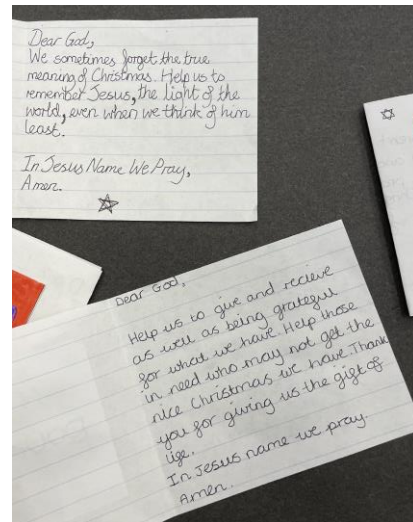 Dear God,
We sometimes forget the true
meaning of Christmas. Help us to
remember Jesus, the light of the
world, even when we think of him
least.
In Jesus Name We Pray,
Amen.
Dear God,
Help us to give and recieve
as well as being grateful
for what we have. Help those
in need who may not get the
nice Christmas we have. Thank
you for giving us the gift of
life.
In Jesus name we pray.
Amen.